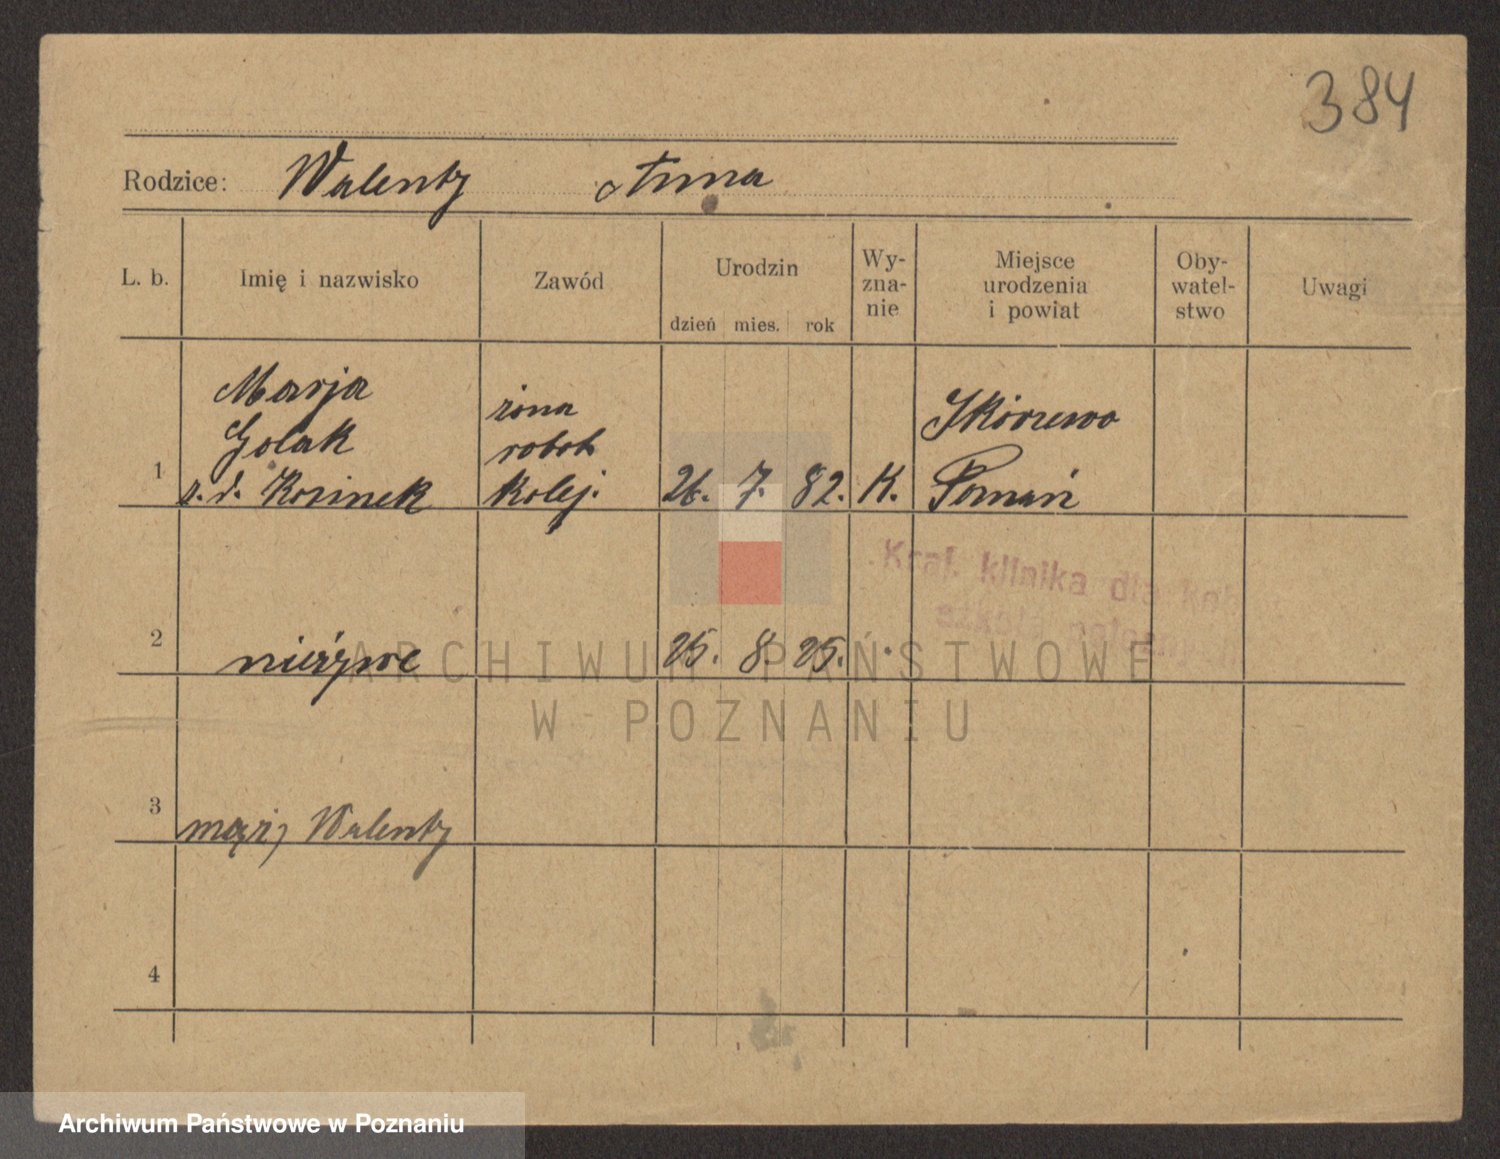 384
Rodzice: Walenty Anna
L. b. Imię i nazwisko Zawód Urodzin dzień mies. rok Wy-zna-nie Miejsce urodzenia i powiat Oby-watel-stwo Uwagi
Marja żona Skórzewo
Golak robot.
1 z. d. Kozinek kolej. 26. 7. 82. K. Poznań
Kraj. klinika dla kobiet
2 nieżywe 25. 8. 25.
ARCHIWUM PAŃSTWOWE
W POZNANIU
3 mąż, Walenty
4
Archiwum Państwowe w Poznaniu